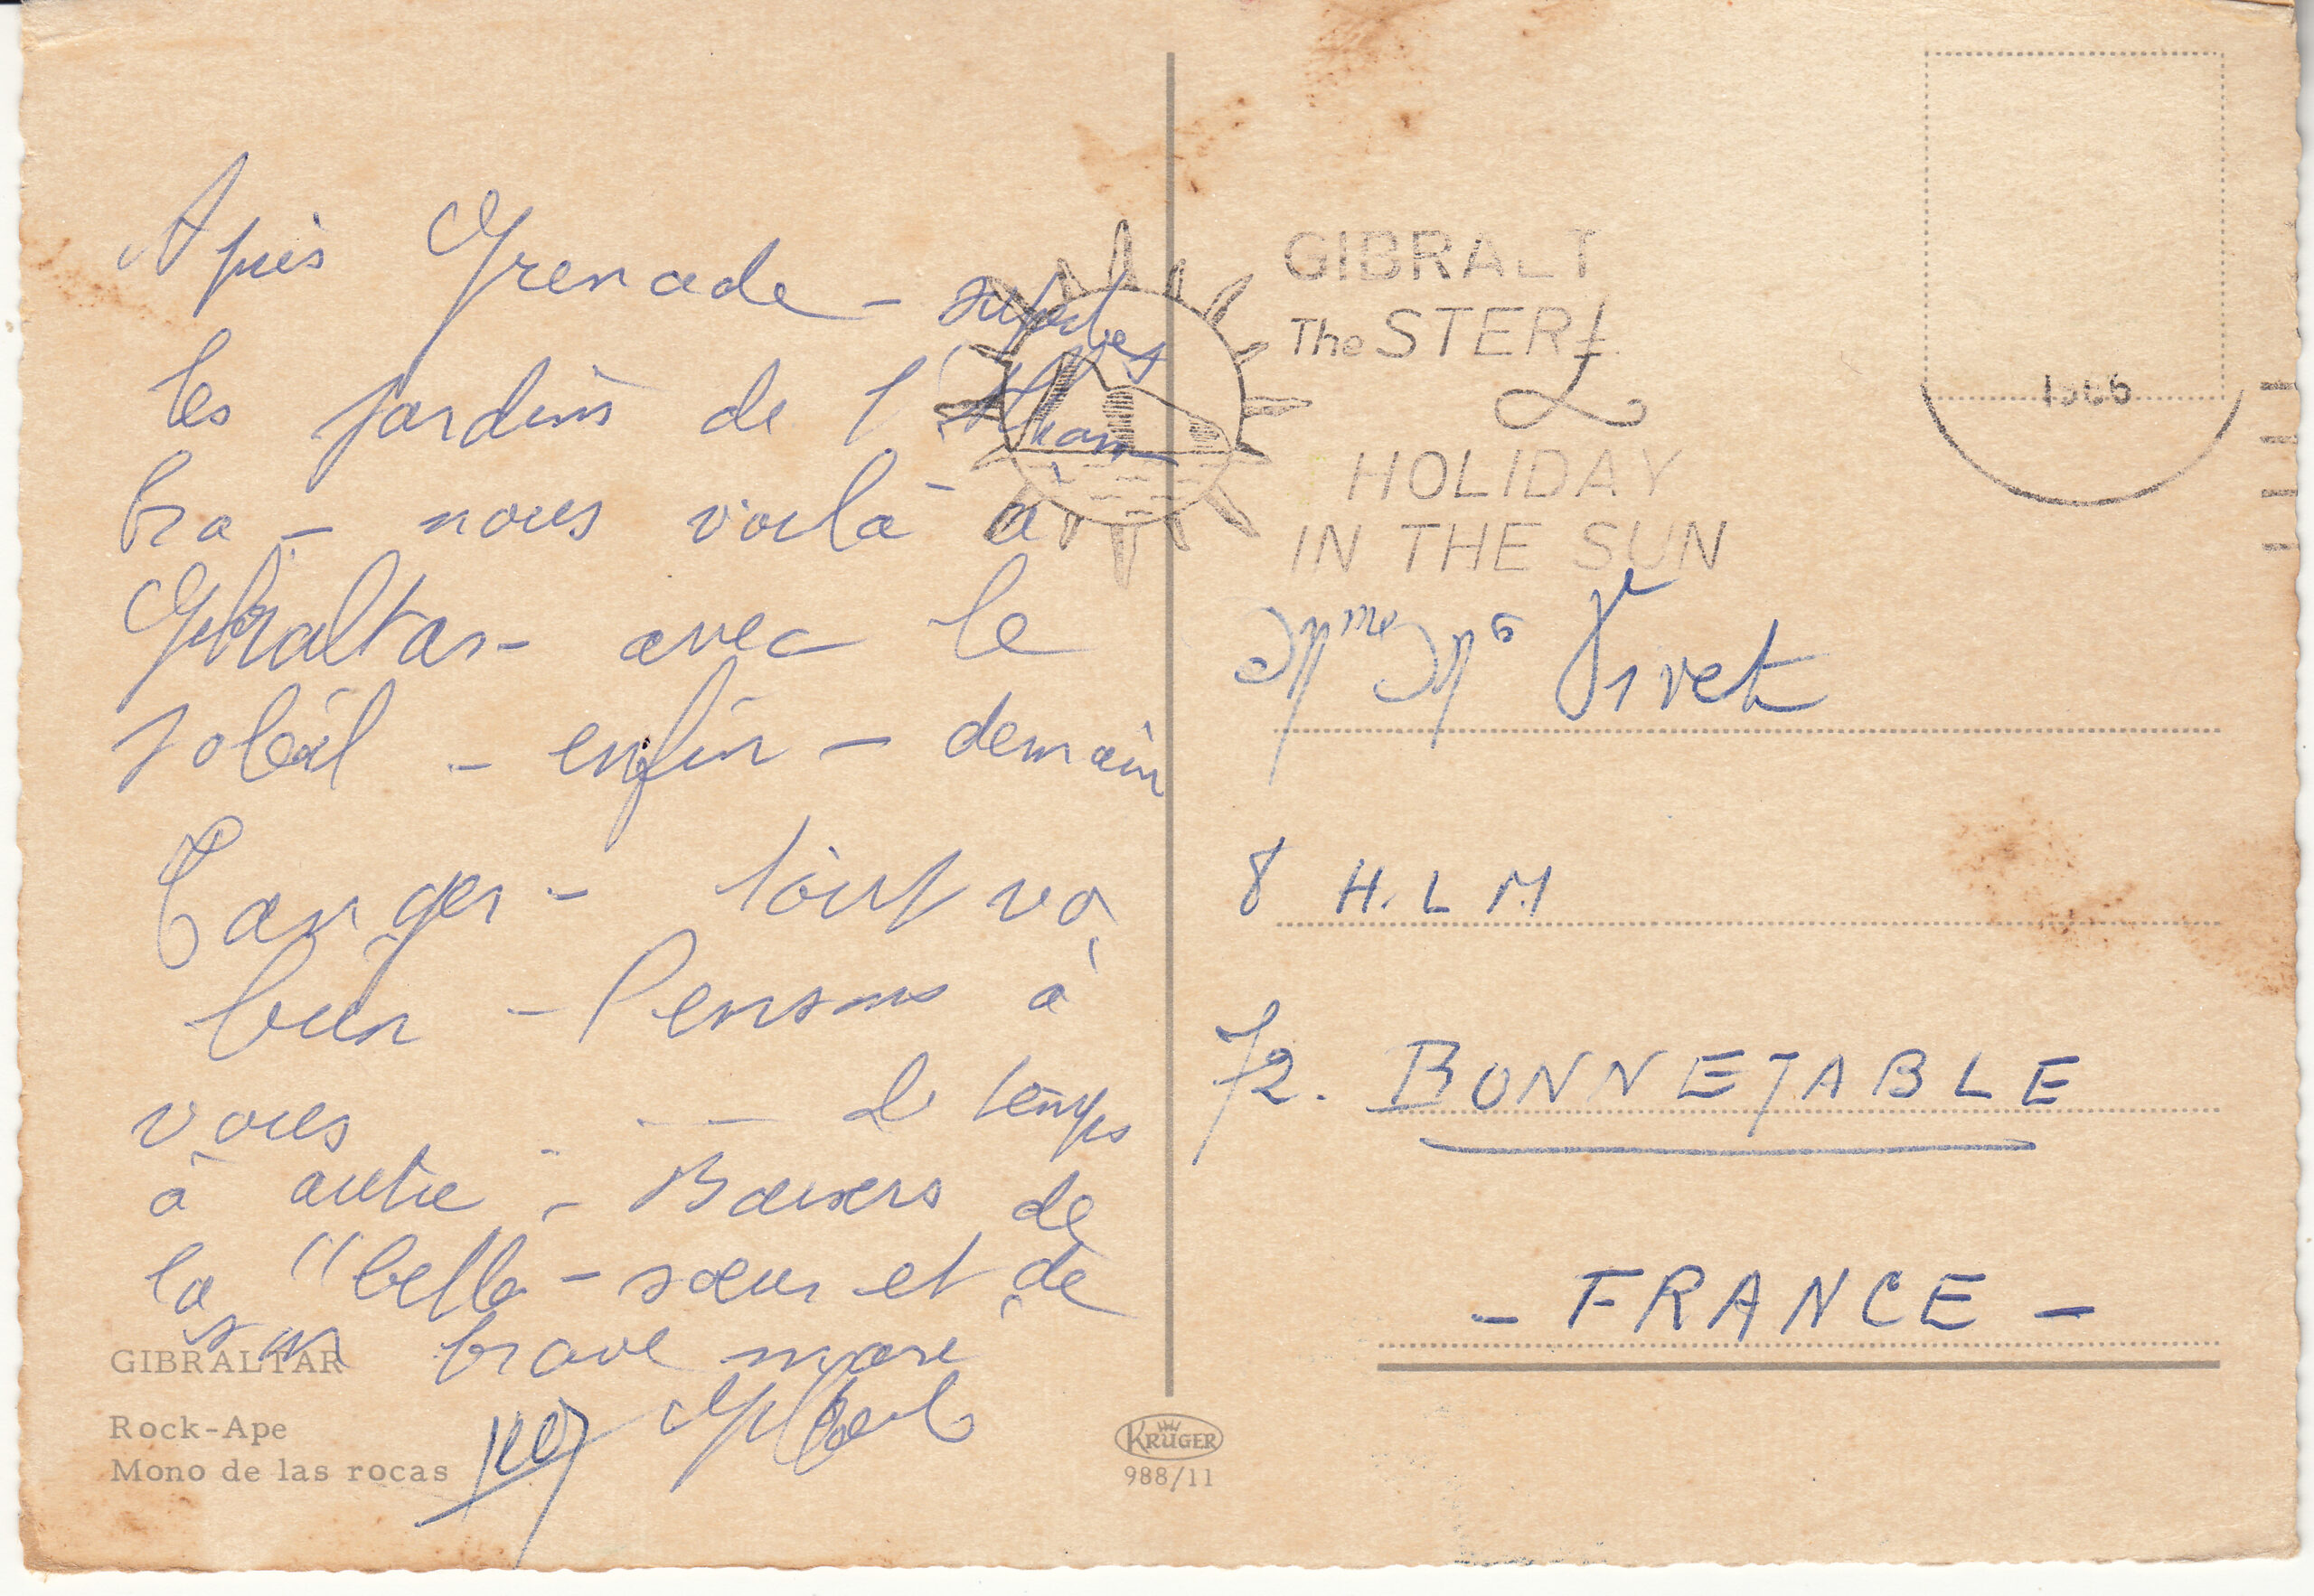 Après Grenade - superbes
les jardins de l'Alham
bra - nous voilà à
Gibraltar - avec le
soleil - enfin - demain
Tanger - tout va
bien - Pensons à
vous - de temps
à autre - Baisers de
la "belle-sœur et de
son brave mari
GIBRALTAR
Rock-Ape
Mono de las rocas
KRÜGER
988/11
GIBRALT
The STER£
HOLIDAY
IN THE SUN
1966
Mme Mr Vivet
8 H.L M
72. BONNETABLE
- FRANCE -